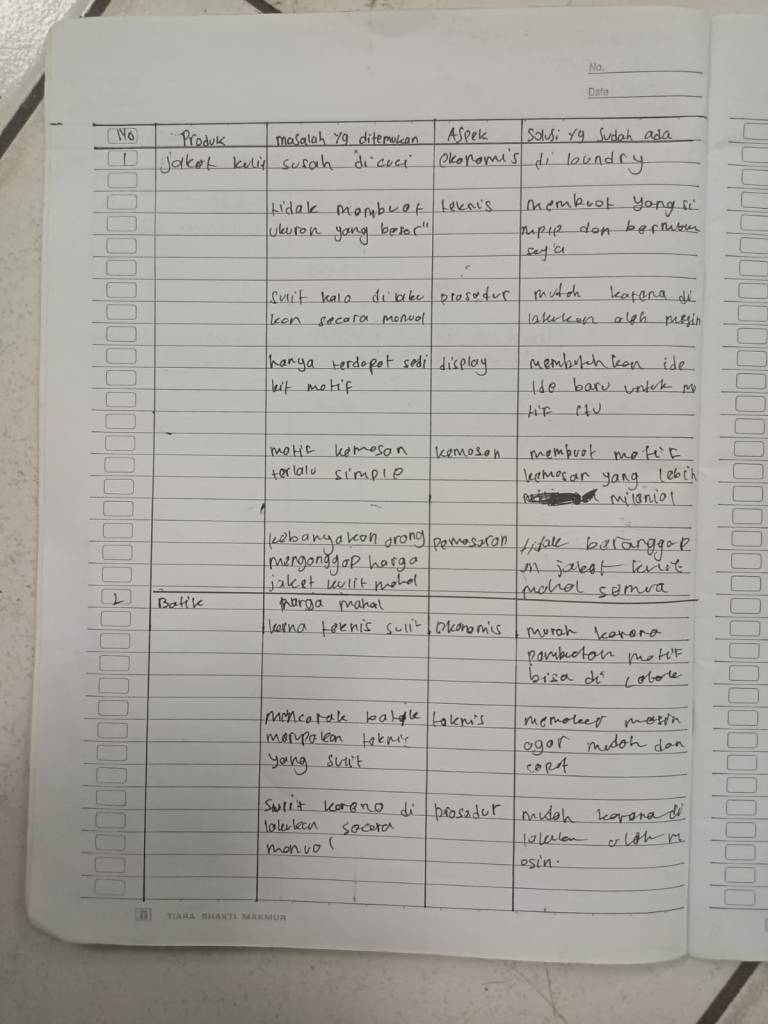 No.
Date
No Produk masalah yg ditemukan Aspek Solusi yg sudah ada
1 jaket kulit susah dicuci ekonomis di loundry
tidak membuat teknis membuat yang si
ukuran yang besar" mple dan bernuan
saja
sulit kalo dilaku prosedur mudah karena di
kan secara manual lakukan oleh mesin
hanya terdapat sedi display membutuhkan ide
kit motif ide baru untuk mo
tif itu
motif kemasan kemasan membuat motif
terlalu simple kemasan yang lebih
milenial
kebanyakan orang pemasaran tidak beranggap
menganggap harga an jaket kulit
jaket kulit mahal mahal semua
2 Batik harga mahal
karna teknis sulit ekonomis murah karena
pembuatan motif
bisa di
mencetak batik teknis memakai mesin
merupakan teknis agar mudah dan
yang sulit cepat
Sulit karena di prosedur mudah karena di
lakukan secara lakukan oleh m
manual esin.
B TIARA BHAKTI MAKMUR